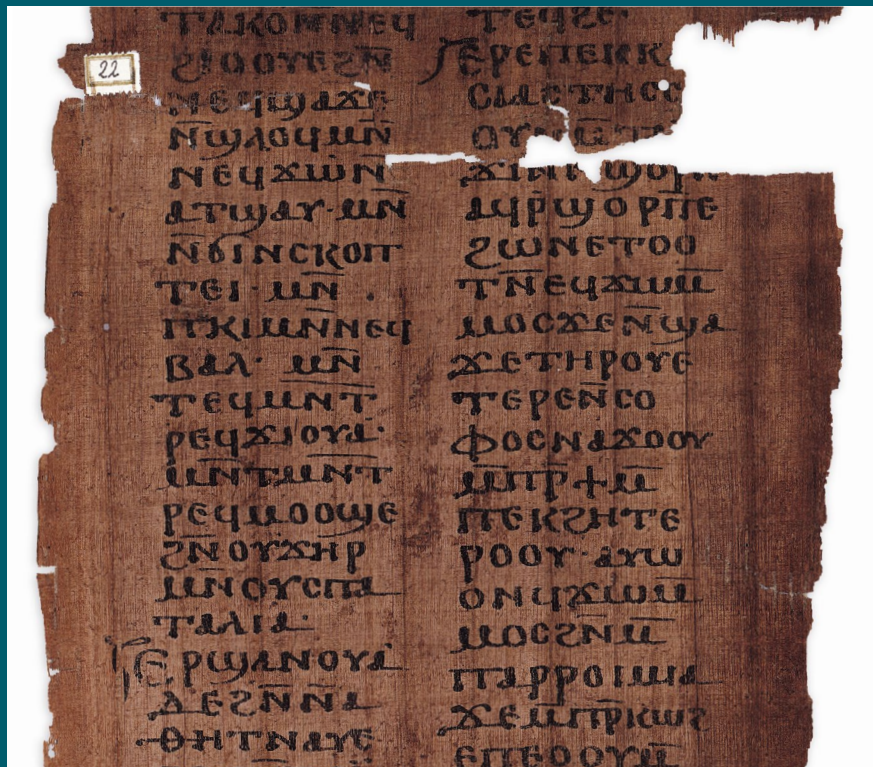 22
ⲧⲁⲕⲟⲛ̅ⲛⲉϥ
ϩⲓⲟⲟⲩⲉϩⲛ̅
ⲛⲉϥϣⲁϫⲉ
ⲛ̅ϣⲗⲟϥⲙⲛ̅
ⲛⲉϥϫⲱⲛ̅
ⲁⲧϣⲁⲩ·ⲙⲛ̅
ⲛ̅ϭⲓⲛⲥⲕⲟⲡ
ⲧⲉⲓ·ⲙⲛ̅
ⲡⲕⲓⲙⲛ̅ⲛⲉϥ
ⲃⲁⲗ· ⲙⲛ̅
ⲧⲉϥⲙⲛ̅ⲧ
ⲣⲉϥϫⲓⲟⲩⲁ·
ⲙⲛ̅ⲧⲙⲛ̅ⲧ
ⲣⲉϥⲙⲟⲟϣⲉ
ϩⲛ̅ⲟⲩϫⲏⲣ
ⲙⲛ̅ⲟⲩⲥⲡⲁ
ⲧⲁⲗⲓⲁ·
ⲉⲣϣⲁⲛⲟⲩⲁ
ⲇⲉϩⲛ̅ⲛ̅ⲁ
ⲑⲏⲧⲛⲁⲩⲉ
ⲧⲉϥϩⲉ·
ⲉⲣⲉⲡⲉⲕⲕ
ⲥⲓⲁⲥⲧⲏⲥ
ⲟⲩⲛ
ϫⲓⲛ
ⲁϥⲣ̅ϣⲟⲣⲡ̅ⲉ
ϩⲱⲛⲉⲧⲟⲟ
ⲧⲛ̅ⲉϥϫⲱⲙ̅
ⲙⲟⲥϫⲉⲛ̅ϣⲁ
ϫⲉⲧⲏⲣⲟⲩⲉ
ⲧⲉⲣⲉⲛ̅ⲥⲟ
ⲫⲟⲥⲛⲁϫⲟⲟⲩ
ⲙ̅ⲡⲣ̅ϯⲙ̅
ⲡⲉⲕϩⲏⲧⲉ
ⲣⲟⲟⲩ·ⲁⲩⲱ
ⲟⲛϥϫⲱⲙ̅
ⲙⲟⲥϩⲛ̅ⲙ̅
ⲡⲁⲣⲣⲟⲓⲙⲓⲁ
ϫⲉⲙ̅ⲡⲣ̅ⲕⲱϩ
ⲉⲡⲉⲟⲟⲩⲙ̅